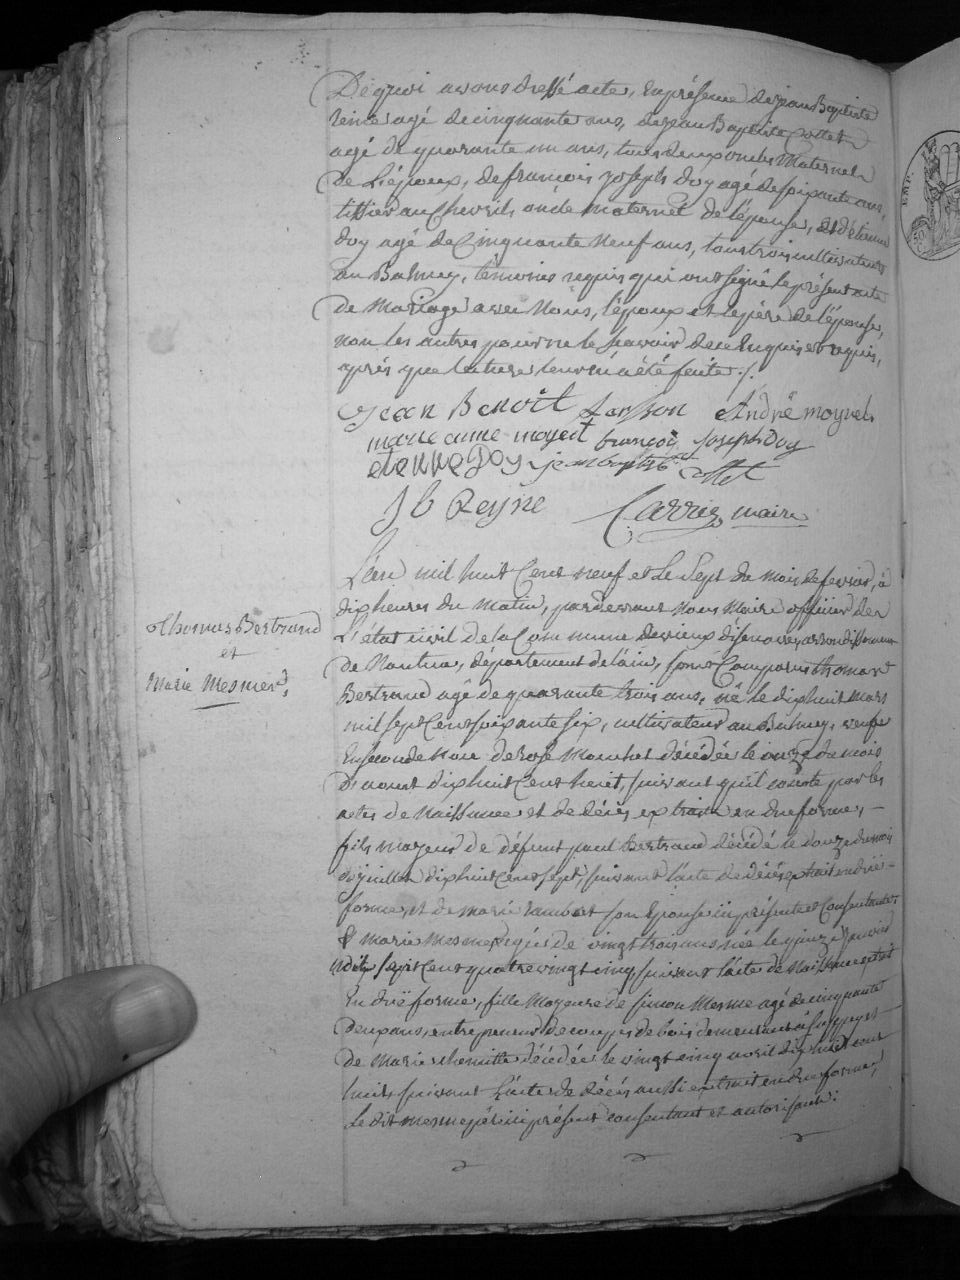 De quoi avons dressé acte, En présence de jean Baptiste
Reine agé de cinquante ans, de jean Baptiste Collet
agé de quarante un ans, tous deux oncles Maternels
de L'époux, de françois joseph doy agé de soixante ans
tissier au Chevril, oncle maternel de l'épouse, et d'étienne
doy agé de Cinquante Neuf ans, tous trois cultivateurs
au Balmey, témoins requis qui ont signé le présent acte
de Mariage avec Nous, l'époux et le père de l'épouse,
non les autres pour ne le Savoir de ce Enquis et requis,
après que lecture leur en a été faite ./.
jean Benoit André moynet
marie anne moynet françois joseph doy
etienne Doy jean baptiste collet
J b Reyne Carrier maire
L'an mil huit Cent neuf et le Sept du Mois de fevrier, à
dix heures du Matin, pardevant Nous Maire officier de
L'état civil de la Commune de vieux d'isenave, arrondissement
de Nantua, département de l'ain, sont Comparus thomas
Bertrand agé de quarante trois ans, né le dix huit Mars
mil sept Cent soixante six, cultivateur au Balmey, veuf
En seconde Noce de Rose Mouchet décédée le onze du mois
D'aoust dix huit Cent huit, suivant qu'il conste par les
actes de Naissance et de décès extraits en due forme,
fils majeur de défunt paul Bertrand décédé le douze du mois
de juillet dix huit Cent sept, suivant l'acte de décès extrait en düe
forme, et de marie son Epouse ici présente et Consentante,
& marie Mesme agée de vingt trois ans née le quinze Janvier
mil sept Cent quatre vingt cinq suivant l'acte de Naissance extrait
En düe forme, fille Majeure de simon Mesme agé de cinquante
deux ans, entrepreneur de coupes de bois demeurant à
de Marie décédée le vingt cinq avril dix huit cent
huit, suivant L'acte de décès aussi extrait en due forme,
Le dit mesme père ici présent consentant et autorisant.
Thomas Bertrand
et
Marie Mesmer
EMP.